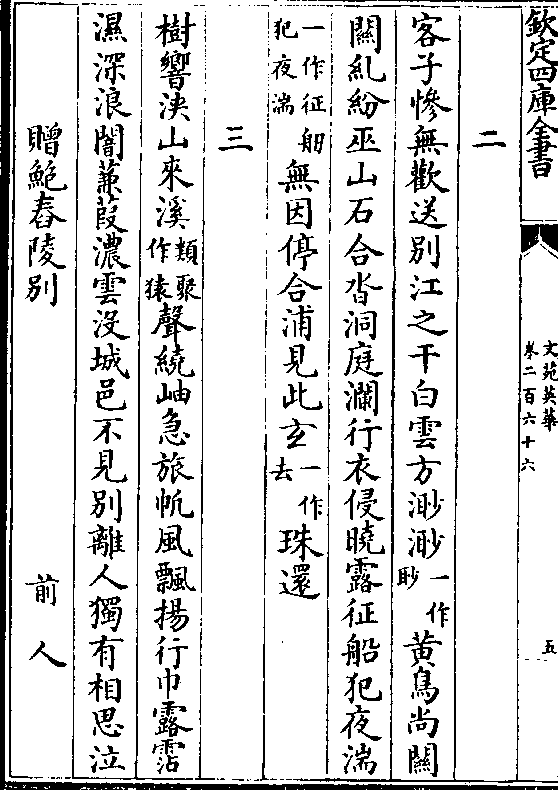 欽定四庫全書
文苑英華
卷二百六十六
五
二
客子慘無歡送別江之干白雲方渺渺一作眇黄鳥尚關
關糺紛巫山石合沓洞庭瀾行衣侵曉露征船犯夜湍
一作征舠犯夜湍無因停合浦見此玄一作去珠還
三
樹響浹山來溪類聚作猿聲繞岫急旅帆風飄揚行巾露霑
濕深浪闇蒹葭濃雲沒城邑不見別離人獨有相思泣
贈鮑舂陵別 前人